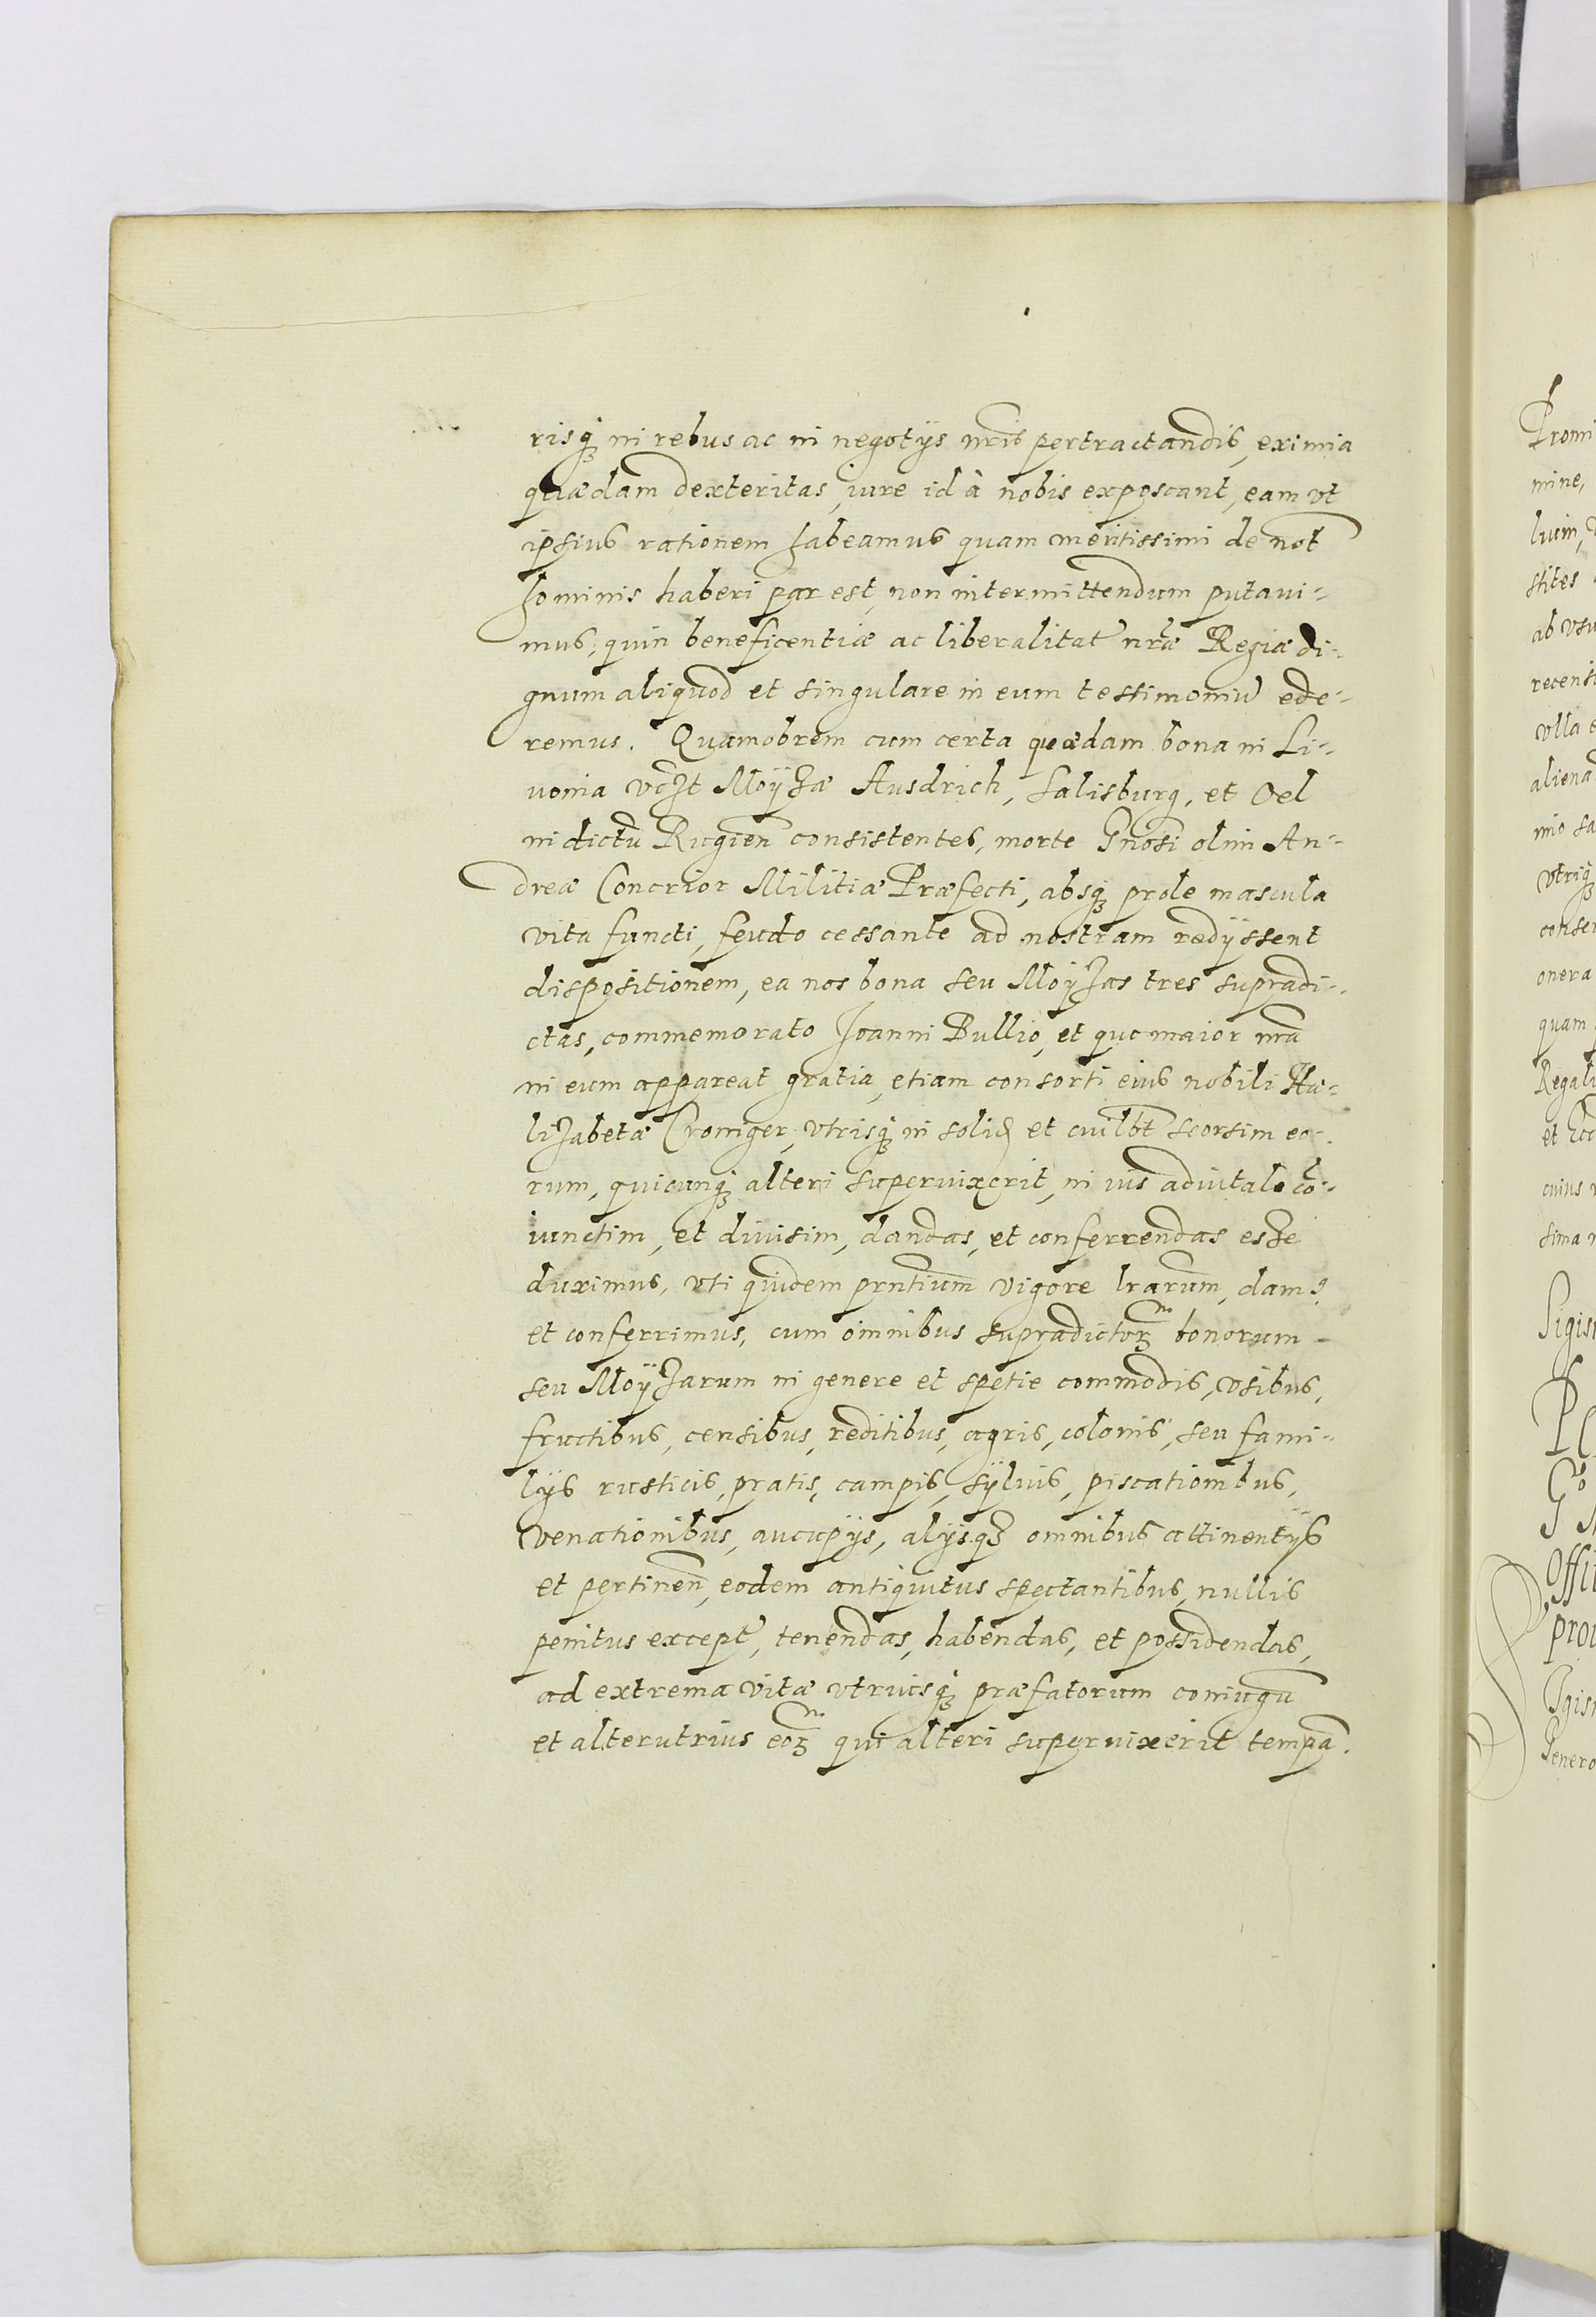 risq₃ in rebus ac in negotijs nr̃is pertractandis, eximia
quædam dexteritas, iure id à nobis exposcant, eam vt
ipsius rationem habeamus quam meritissimi de nob̃
hominis haberi par est, non intermittendum putaui-
mus, quin beneficentiæ ac liberalitat̃ nr̃æ Regiæ di-
gnum aliquod et singulare in eum testimoniũ ede-
remus. Quamobrem cum certa quædam bona in Li-
uonia vcz̃t Moÿzæ Ausdrich, Salisburg, et Oel
in dictũ Rugieñ consistentes, morte Gñosi olim An-
dreæ Concrior Militiæ Præfecti, absq₃ prole mascula
vita functi, feudo cessante ad nostram redijssent
dispositionem, ea nos bona seu Moÿzas tres supradi-
ctas, commemorato Joanni Bullio, et quo maior nr̃a
in eum appareat gratia, etiam consorti eius nobili Ha-
lizabetæ Croniger, vtrisq₃ in solid et cuilb̃t seorsim eo-
rum, quicunq₃ alteri superuixerit, in ius aduitale cõ-
iunctim, et diuisim, dandas, et conferrendas esse
duximus, vti quidem prñtium vigore lr̃arum, dam9
et conferrimus, cum omnibus supradictor₃ bonorum
seu Moÿzarum in genere et spetie commodis, vsibus,
fructibus, censibus, reditibus, agris, colonis, seu fami-
lijs rusticis, pratis, campis, sÿluis, piscationibus,
venationibus, aucupijs, alijsq₃ omnibus attinentijs
et pertineñ, eodem antiquitus spectantibus, nullis
penitus except̃, tenendas, habendas, et possidendas,
ad extrema vitæ vtriusq₃ præfatorum coniugũ
et alterutrius eor₃ qui alteri superuixerit temp̃a.